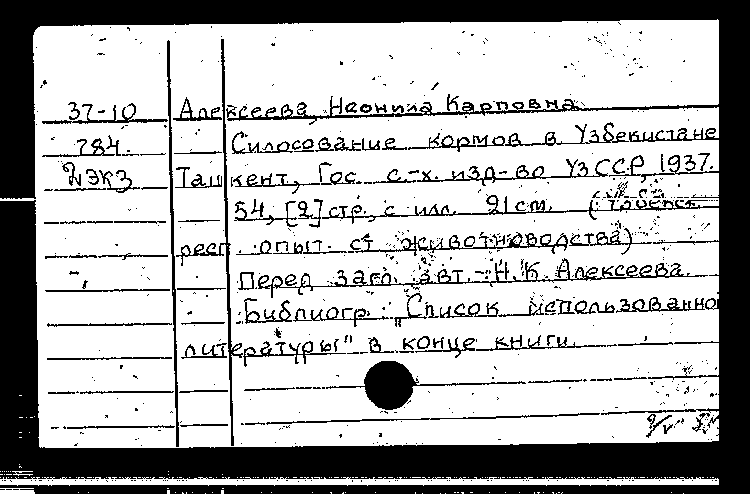 37-10 Алексеева, Неонила Карповна.
784. Силосование кормов в Узбекистане
2 экз Ташкент, Гос. с.-х. изд-во УзССР, 1937.
54, [2] стр., с илл. 21 см. (Узбекск.
респ. опыт. ст. животноводства)
Перед загл. авт.: Н.К. Алексеева.
Библиогр.: „Список использованно
литературы" в конце книги.